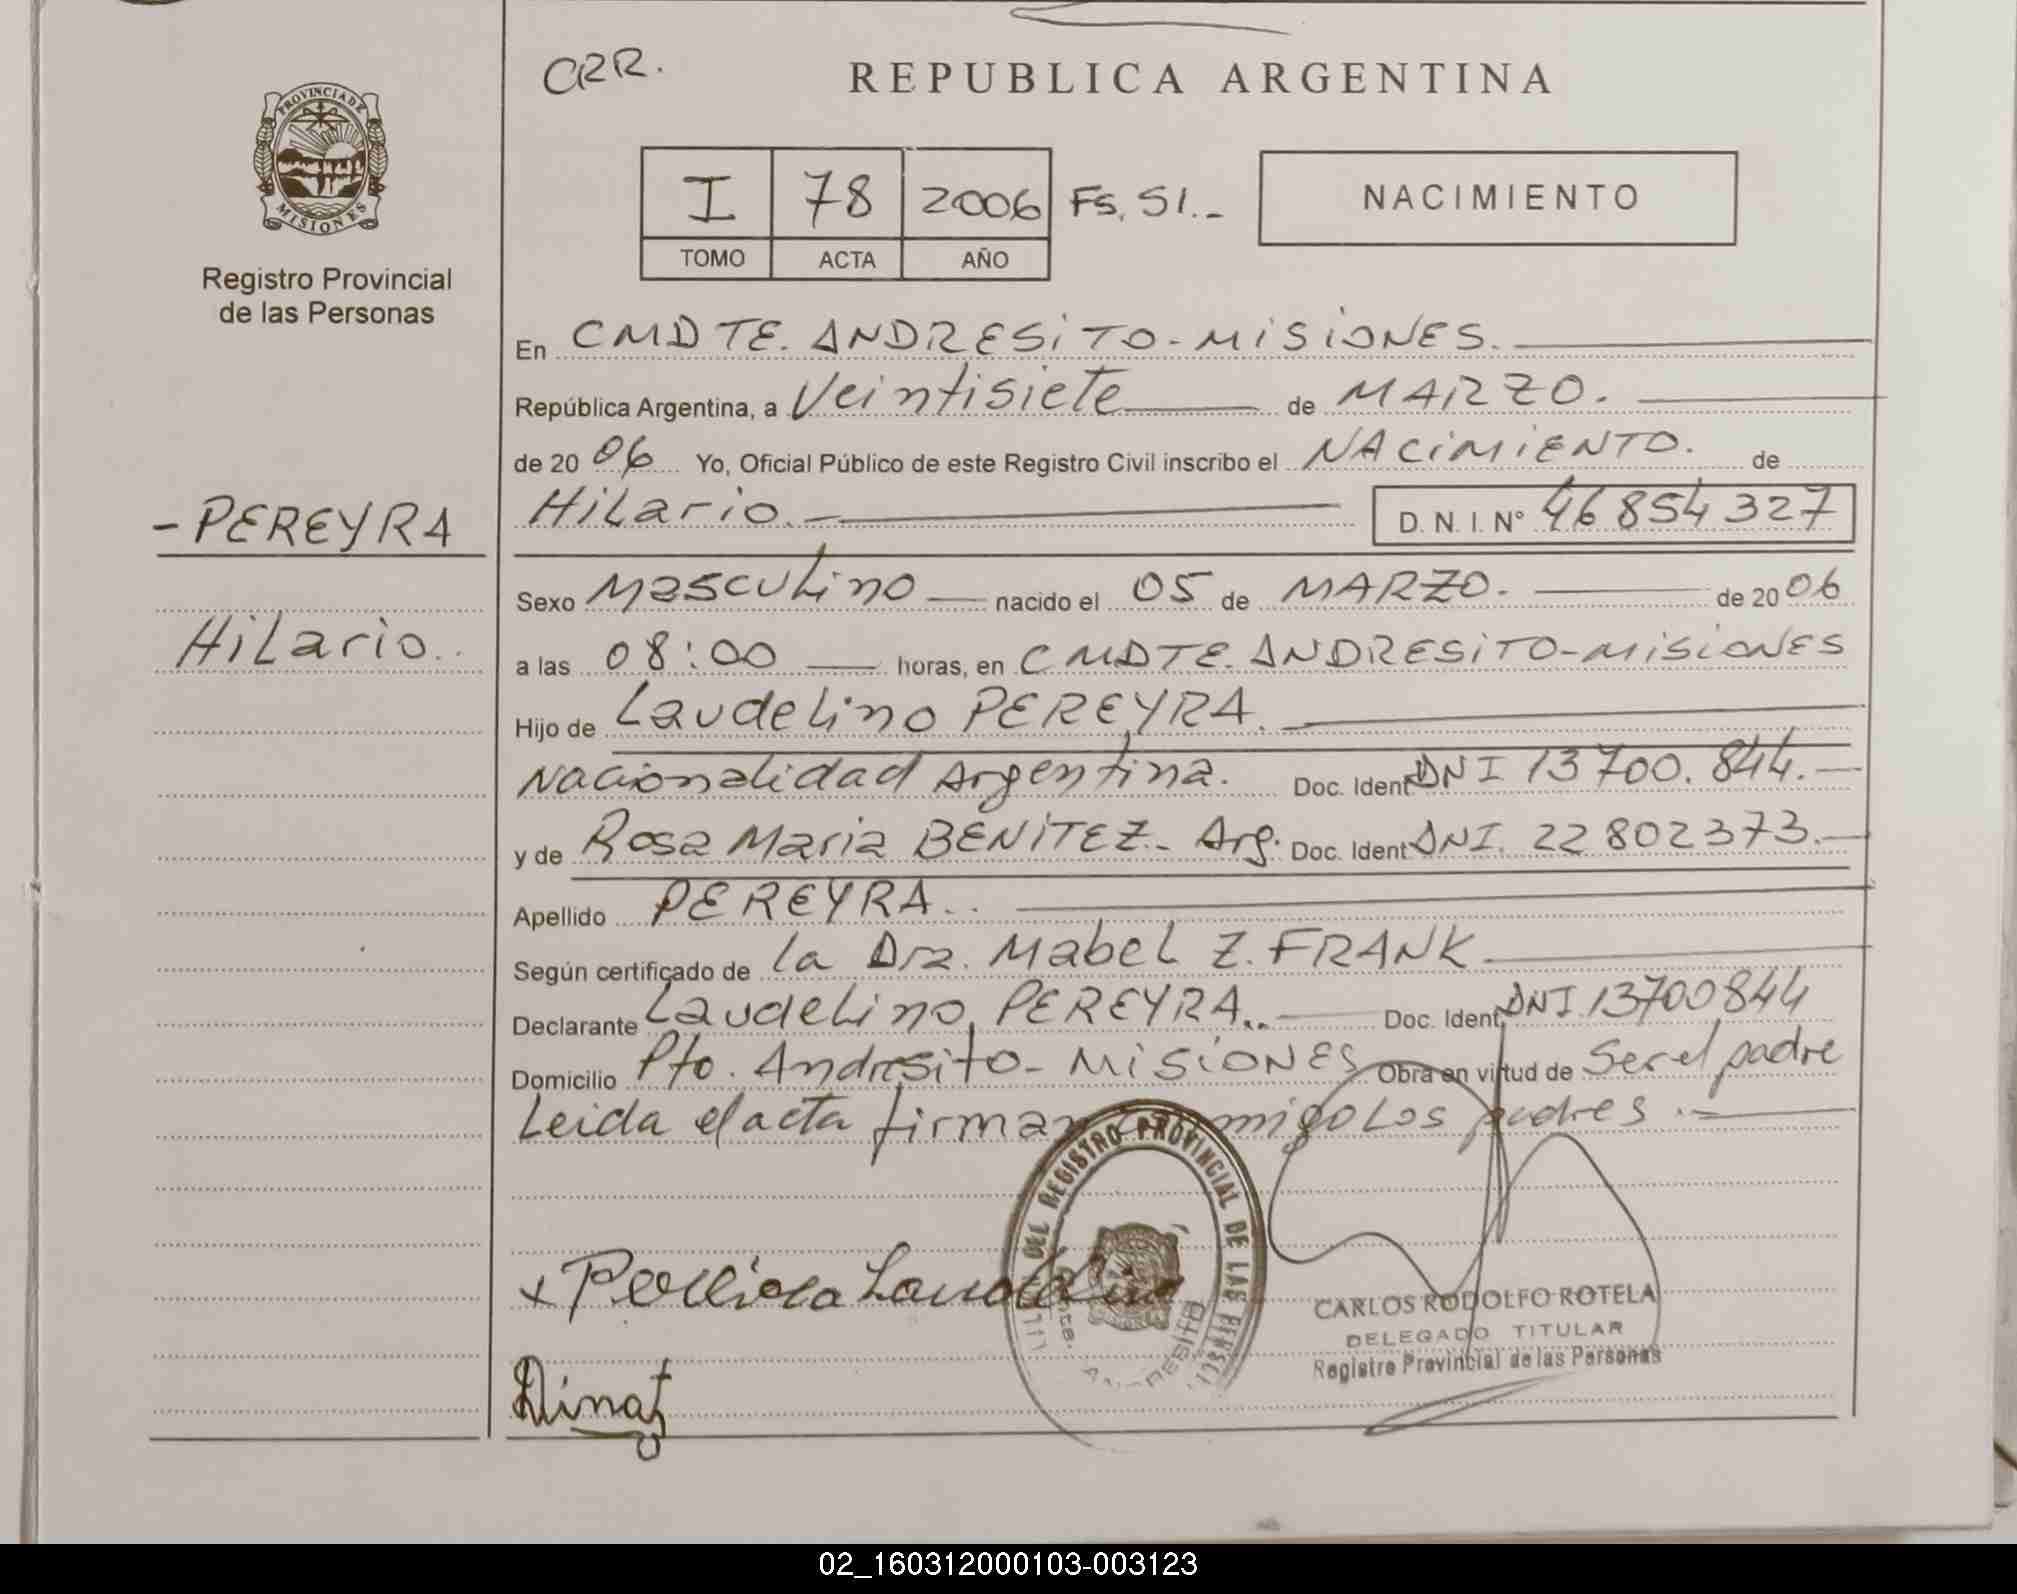 CRR.
REPUBLICA ARGENTINA
PROVINCIA DE
MISIONES
Registro Provincial
de las Personas
I 78 2006 Fs. 51.-
TOMO ACTA AÑO
NACIMIENTO
En CMDTE. ANDRESITO-MISIONES.
República Argentina, a Veintisiete de MARZO.
de 20 06 Yo, Oficial Público de este Registro Civil inscribo el NACIMIENTO. de
Hilario.- D. N. I. N° 46 854 327
- PEREYRA
Hilario..
Sexo Masculino nacido el 05 de MARZO. de 20 06
a las 08:00 horas, en CMDTE. ANDRESITO-MISIONES
Hijo de Laudelino PEREYRA.
Nacionalidad Argentina. Doc. Ident DNI 13 700. 844.-
y de Rosa Maria BENITEZ.- Arg. Doc. Ident DNI. 22 802 373.-
Apellido PEREYRA..
Según certificado de la Dra. Mabel Z. FRANK
Declarante Laudelino PEREYRA.. Doc. Ident DNI 13700844
Domicilio Pto. Andresito- MISIONES Obra en virtud de Ser el padre
Leida el acta firman conmigo Los padres.-
DEL REGISTRO PROVINCIAL DE LAS
x Laudelino
CARLOS RODOLFO ROTELA
DELEGADO TITULAR
Registro Provincial de las Personas
02_160312000103-003123